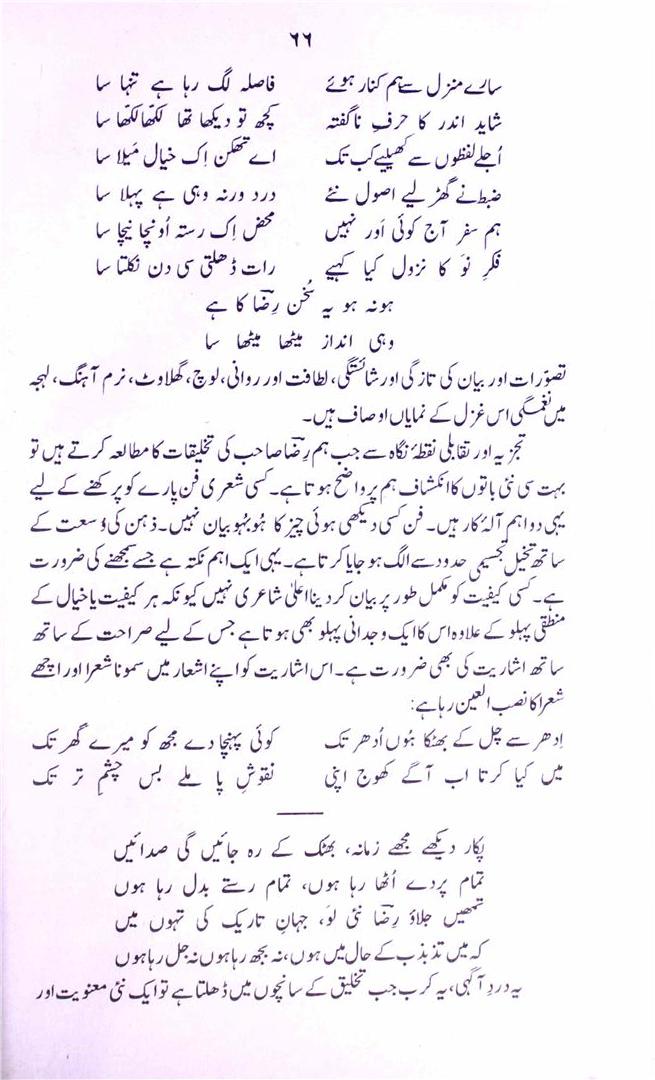 ٦٦
سارے منزل سے ہم کنار ہوئے فاصلہ لگ رہا ہے تنہا سا
شاید اندر کا حرفِ ناگفتہ کچھ تو دیکھا تھا لکھا لکھا سا
اُجلے لفظوں سے کھیلیے کب تک اے تھکن اِک خیال مَیلا سا
ضبط نے گھڑ لیے اصول نئے درد ورنہ وہی ہے پہلا سا
ہم سفر آج کوئی اَور نہیں محض اِک رستہ اُونچا نیچا سا
فکرِ نَو کا نزول کیا کہیے رات ڈھلتی سی دن نکلتا سا
ہو نہ ہو یہ سُخن رِضؔا کا ہے
وہی انداز میٹھا میٹھا سا
تصوّرات اور بیان کی تازگی اور شائستگی، لطافت اور روانی، لوچ، گھلاوٹ، نرم آہنگ، لہجہ
میں نغمگی اس غزل کے نمایاں اوصاف ہیں۔
تجزیہ اور تقابلی نقطۂ نگاہ سے جب ہم رِضؔا صاحب کی تخلیقات کا مطالعہ کرتے ہیں تو
بہت سی نئی باتوں کا انکشاف ہم پر واضح ہوتا ہے۔ کسی شعری فن پارے کو پرکھنے کے لیے
یہی دو اہم آلۂ کار ہیں۔ فن کسی دیکھی ہوئی چیز کا ہُوبہُو بیان نہیں۔ ذہن کی وُسعت کے
ساتھ تخیل تجسیمی حدود سے الگ ہو جایا کرتا ہے۔ یہی ایک اہم نکتہ ہے جسے سمجھنے کی ضرورت
ہے۔ کسی کیفیت کو مکمل طور پر بیان کر دینا اعلیٰ شاعری نہیں کیونکہ ہر کیفیت یا خیال کے
منطقی پہلو کے علاوہ اس کا ایک وجدانی پہلو بھی ہوتا ہے جس کے لیے صراحت کے ساتھ
ساتھ اشاریت کی بھی ضرورت ہے۔ اس اشاریت کو اپنے اشعار میں سمونا شعرا اور اچھے
شعرا کا نصب العین رہا ہے:
اِدھر سے چل کے بھٹکا ہُوں اُدھر تک کوئی پہنچا دے مجھ کو میرے گھر تک
میں کیا کرتا اب آگے کھوج اپنی نقوشِ پا ملے بس چشمِ تر تک
پکار دیکھے مجھے زمانہ، بھٹک کے رہ جائیں گی صدائیں
تمام پردے اُٹھا رہا ہوں، تمام رستے بدل رہا ہوں
تمھیں جلاؤ رِضؔا نئی لَو، جہانِ تاریک کی تہوں میں
کہ میں تذبذب کے حال میں ہوں، نہ بجھ رہا ہوں نہ جل رہا ہوں
یہ دردِ آگہی، یہ کرب جب تخلیق کے سانچوں میں ڈھلتا ہے تو ایک نئی معنویت اور